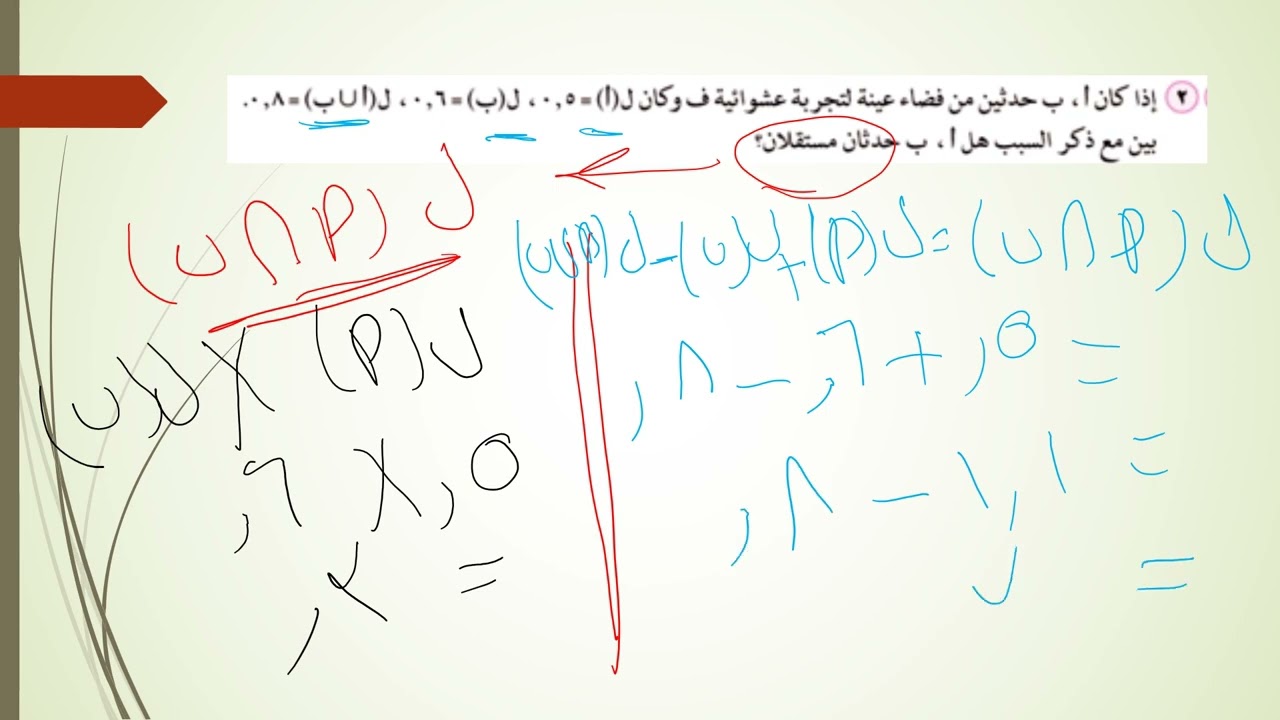 ٢ إذا كان أ ، ب حدثين من فضاء عينة لتجربة عشوائية ف وكان ل(أ) = ٠,٥ ، ل(ب) = ٠,٦ ، ل(أ ∪ ب) = ٠,٨ .
بين مع ذكر السبب هل أ ، ب حدثان مستقلان؟
ل(أ ∩ ب) = ل(أ) + ل(ب) - ل(أ ∪ ب)
= ٥, + ٦, - ٨,
= ١,١ - ٨,
=
ل(أ ∩ ب)
ل(أ) × ل(ب)
٥, × ٦,
=